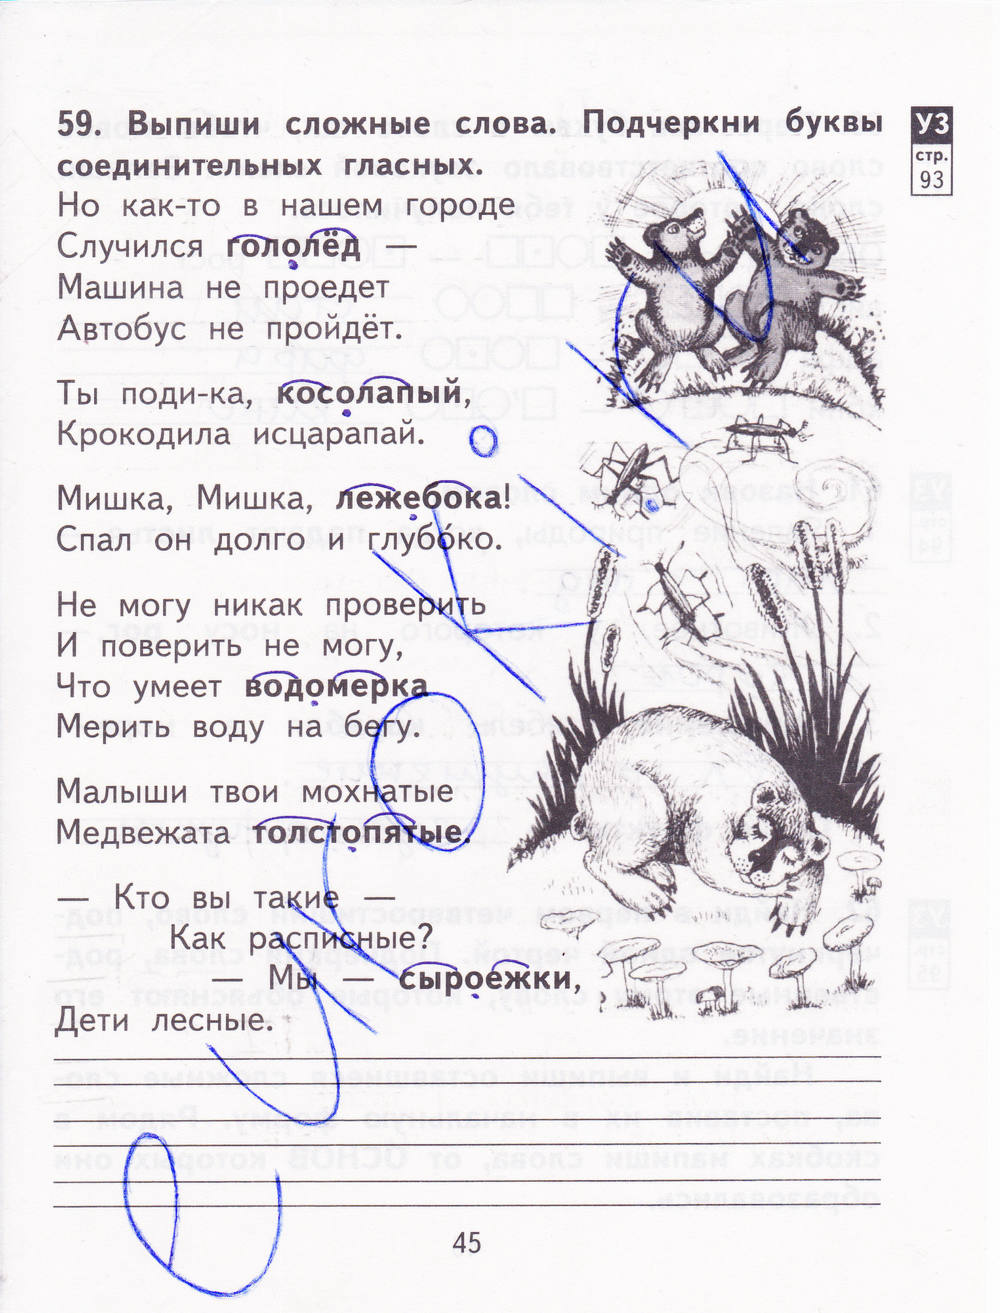 59. Выпиши сложные слова. Подчеркни буквы
соединительных гласных.
УЗ
стр.
93
Но как-то в нашем городе
Случился гололёд —
Машина не проедет
Автобус не пройдёт.
Ты поди-ка, косолапый,
Крокодила исцарапай.
Мишка, Мишка, лежебока!
Спал он долго и глубоко.
Не могу никак проверить
И поверить не могу,
Что умеет водомерка
Мерить воду на бегу.
Малыши твои мохнатые
Медвежата толстопятые.
— Кто вы такие —
Как расписные?
Мы сыроежки,
Дети лесные.
45